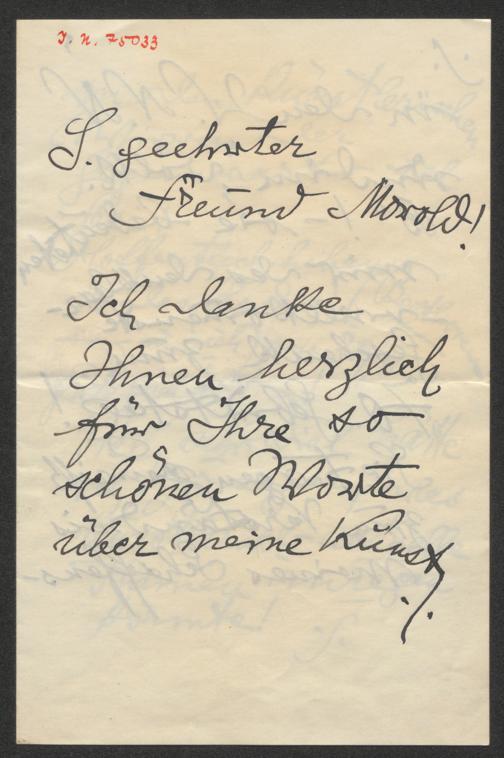 I. N. 75033
S. geehrter
Freund Morold!
Ich danke
Ihnen herzlich
für Ihre so
schönen Worte
über meine Kunst
./.